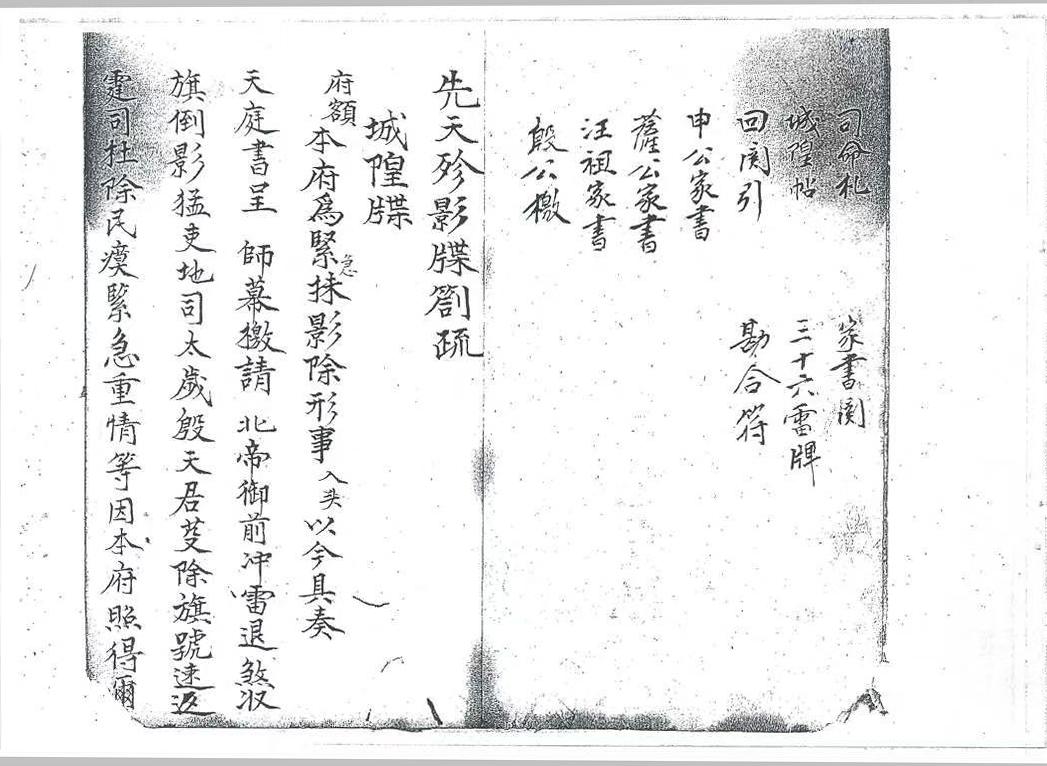 司命札 家書関
城隍帖 三十六雷牌
回関引 勘合符
申公家書
薩公家書
汪祖家書
殷公檄
先天殄影牒劄疏
城隍牒
府額本府為緊急抹影除形事入头以今具奏
天庭書呈 師幕檄請 北帝御前冲雷退煞収
旗倒影猛吏地司太歲殷天君芟除旗號速返
霆司杜除民瘼緊急重情等因本府照得爾